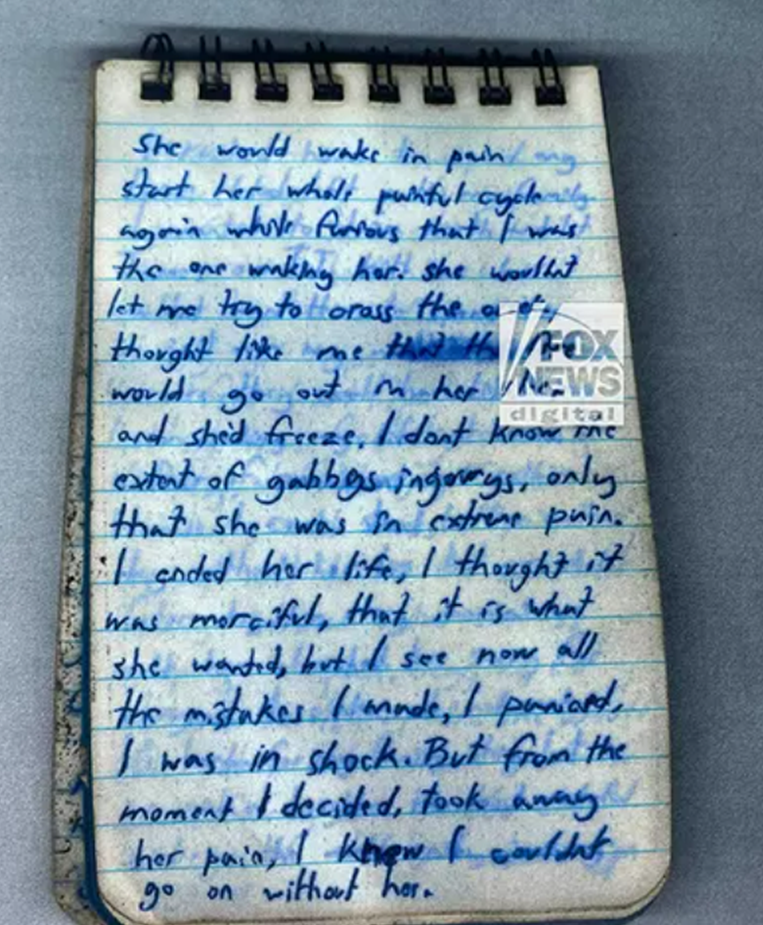 She would wake in pain
start her whole painful cycle
again while furious that I was
the one waking her. she wouldnt
let me try to cross the
thought like me
would go out in her
and she'd freeze, I dont know the
extent of gabbys ingourys, only
that she was in extreme pain.
I ended her life, I thought it
was merciful, that it is what
she wanted, but I see now all
the mistakes I made, I paniced,
I was in shock. But from the
moment I decided, took away
her pain, I knew I couldnt
go on without her.
FOX
NEWS
digital